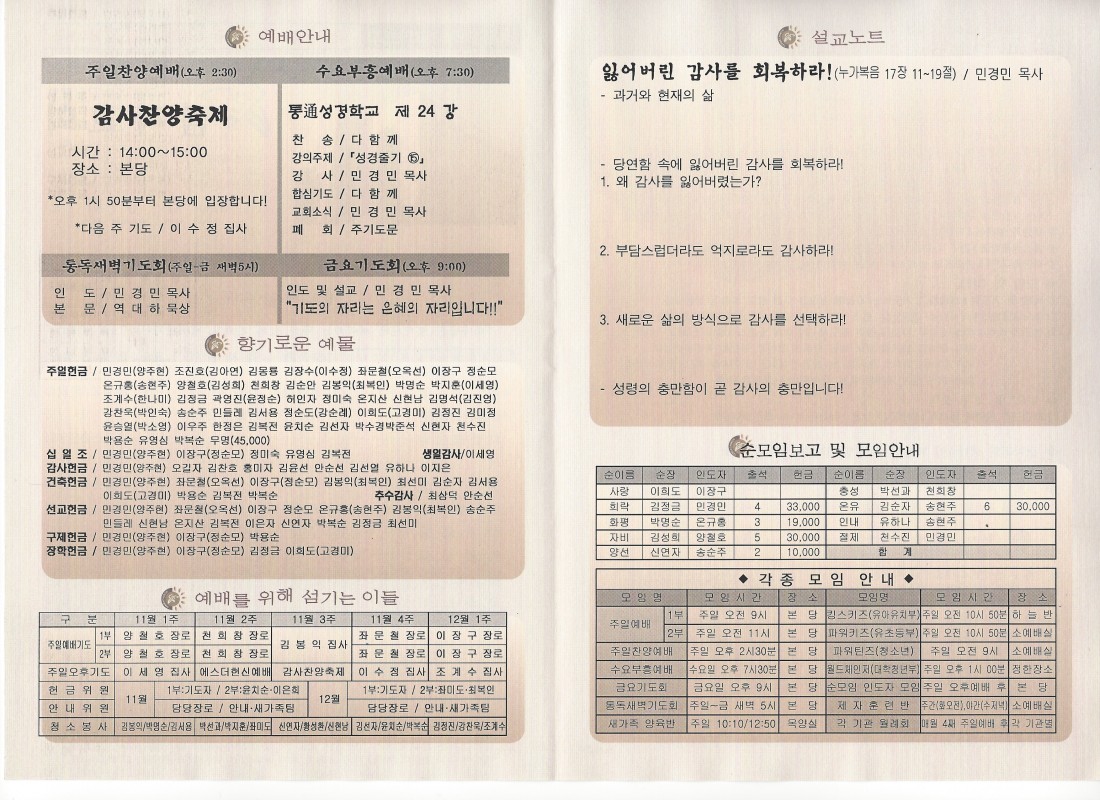 예배안내
주일찬양예배(오후 2:30)
감사찬양축제
시간 : 14:00~15:00
장소 : 본당
*오후 1시 50분부터 본당에 입장합니다!
*다음 주 기도 / 이 수 정 집사
수요부흥예배(오후 7:30)
통通성경학교 제 24 강
찬 송 / 다 함 께
강의주제 / 「성경줄기 ⑮」
강 사 / 민 경 민 목사
합심기도 / 다 함 께
교회소식 / 민 경 민 목사
폐 회 / 주기도문
통독새벽기도회(주일-금 새벽5시)
인 도 / 민 경 민 목사
본 문 / 역 대 하 묵상
금요기도회(오후 9:00)
인도 및 설교 / 민 경 민 목사
"기도의 자리는 은혜의 자리입니다!!"
향기로운 예물
주일헌금 / 민경민(양주현) 조진호(김아연) 김몽룡 김장수(이수정) 좌문철(오옥선) 이장구 정순모
은규홍(송현주) 양철호(김성희) 천희창 김순안 김봉익(최복인) 박명순 박지훈(이세영)
조계수(한나미) 김정금 곽영진(윤정순) 허인자 정미숙 온지산 신현남 김명석(김진영)
강찬욱(박인숙) 송순주 민들레 김서용 정순도(강순례) 이희도(고경미) 김정진 김미정
윤승열(박소영) 이우주 한정은 김복전 윤치순 김선자 박수경박준석 신현자 천수진
박용순 유영심 박복순 무명(45,000)
십 일 조 / 민경민(양주현) 이장구(정순모) 정미숙 유영심 김복전 생일감사/이세영
감사헌금 / 민경민(양주현) 오길자 김찬호 홍미자 김윤선 안순선 김선열 유하나 이지은
건축헌금 / 민경민(양주현) 좌문철(오옥선) 이장구(정순모) 김봉익(최복인) 최선미 김순자 김서용
이희도(고경미) 박용순 김복전 박복순 추수감사 / 최삼덕 안순선
선교헌금 / 민경민(양주현) 좌문철(오옥선) 이장구 정순모 온규홍(송현주) 김봉익(최복인) 송순주
민들레 신현남 온지산 김복전 이은자 신연자 박복순 김정금 최선미
구제헌금 / 민경민(양주현) 이장구(정순모) 박용순
장학헌금 / 민경민(양주현) 이장구(정순모) 김정금 이희도(고경미)
예배를 위해 섬기는 이들
구 분 11월 1주 11월 2주 11월 3주 11월 4주 12월 1주
주일예배기도 1부 양 철 호 장로 천 희 창 장로 김 봉 익 집사 좌 문 철 장로 이 장 구 장로
2부 양 철 호 장로 천 희 창 장로 좌 문 철 장로 이 장 구 장로
주일오후기도 이 세 영 집사 에스더헌신예배 감사찬양축제 이 수 정 집사 조 계 수 집사
헌 금 위 원 11월 1부:기도자 / 2부:윤치순·이은희 12월 1부:기도자 / 2부:좌미도·최복인
안 내 위 원 담당장로 / 안내·새가족팀 담당장로 / 안내·새가족팀
청 소 봉 사 김봉익/박명순/김서용 박선과/박지훈/좌미도 신연자/황성환/신현남 김선자/윤치순/박복순 김정진/강찬욱/조계수
설교노트
잃어버린 감사를 회복하라!(누가복음 17장 11~19절) / 민경민 목사
- 과거와 현재의 삶
- 당연함 속에 잃어버린 감사를 회복하라!
1. 왜 감사를 잃어버렸는가?
2. 부담스럽더라도 억지로라도 감사하라!
3. 새로운 삶의 방식으로 감사를 선택하라!
- 성령의 충만함이 곧 감사의 충만입니다!
순모임보고 및 모임안내
순이름 순장 인도자 출석 헌금 순이름 순장 인도자 출석 헌금
사랑 이희도 이장구 충성 박선과 천희창
희락 김정금 민경민 4 33,000 온유 김순자 송현주 6 30,000
화평 박명순 온규홍 3 19,000 인내 유하나 송현주
자비 김성희 양철호 5 30,000 절제 천수진 민경민
양선 신연자 송순주 2 10,000 합 계
◆ 각 종 모 임 안 내 ◆
모 임 명 모 임 시 간 장 소 모임명 모 임 시 간 장 소
주일예배 1부 주일 오전 9시 본 당 킹스키즈(유아유치부) 주일 오전 10시 50분 하 늘 반
2부 주일 오전 11시 본 당 파워키즈(유초등부) 주일 오전 10시 50분 소예배실
주일찬양예배 주일 오후 2시30분 본 당 파워틴즈(청소년) 주일 오전 9시 소예배실
수요부흥예배 수요일 오후 7시30분 본 당 월드체인저(대학청년부) 주일 오후 1시 00분 정한장소
금요기도회 금요일 오후 9시 본 당 순모임 인도자 모임 주일 오후예배 후 본 당
통독새벽기도회 주일-금 새벽 5시 본 당 제 자 훈 련 반 주간(화오전),야간(수저녁) 소예배실
새가족 양육반 주일 10:10/12:50 목양실 각 기관 월례회 매월 4째 주일예배 후 각 기관별